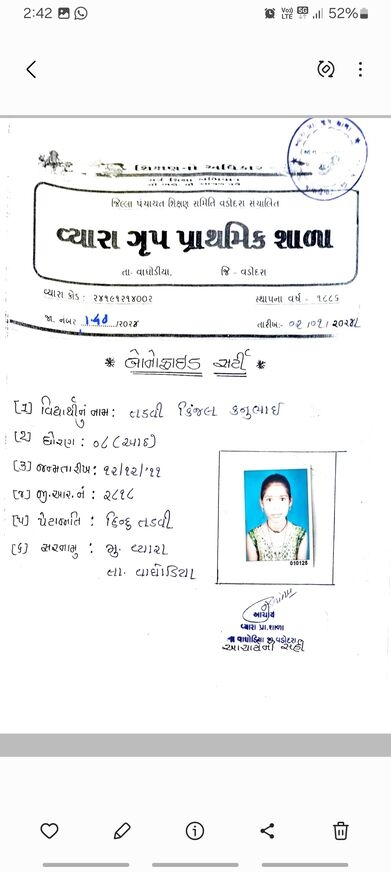 2:42
Vo)) LTE 5G 52%
જિલ્લા પંચાયત શિક્ષણ સમિતિ વડોદરા સંચાલિત
વ્યારા ગૃપ પ્રાથમિક શાળા
તા- વાઘોડીયા, જિ - વડોદરા
વ્યારા કોડ : ૨૪૧૯૧૨૧૪૦૦૨ સ્થાપના વર્ષ - ૧૮૮૬
જા. નબર /૨૦૨૪ તારીખ:-
* બોનોફાઇડ સર્ટી *
[૧] વિદ્યાર્થીનું નામ : તડવી કિંજલ કનુભાઇ
[૨] ધોરણ : ૦૮ (આઠ)
[૩] જન્મતારીખ : ૧૨/૧૨/'૧૧
[૪] જી.આર.નં : ૨૮૧૮
[૫] પેટાજાતિ : હિન્દુ તડવી
[૬] સરનામુ : મુ. વ્યારા
તા. વાઘોડિયા
010128
આચાર્ય
વ્યારા પ્રા.શાળા
તા વાઘોડિયા જી.વડોદરા
આચાર્યની સહી